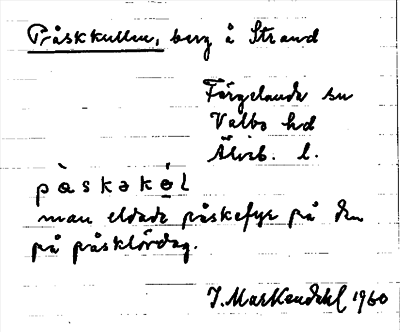 Påskkullen, berg å Strand
Färgelanda sn
Valbo hd
Älvsb. l.
pàskəkól
man eldade påskefyr på den
på påsklördag.
J. Markendahl 1960